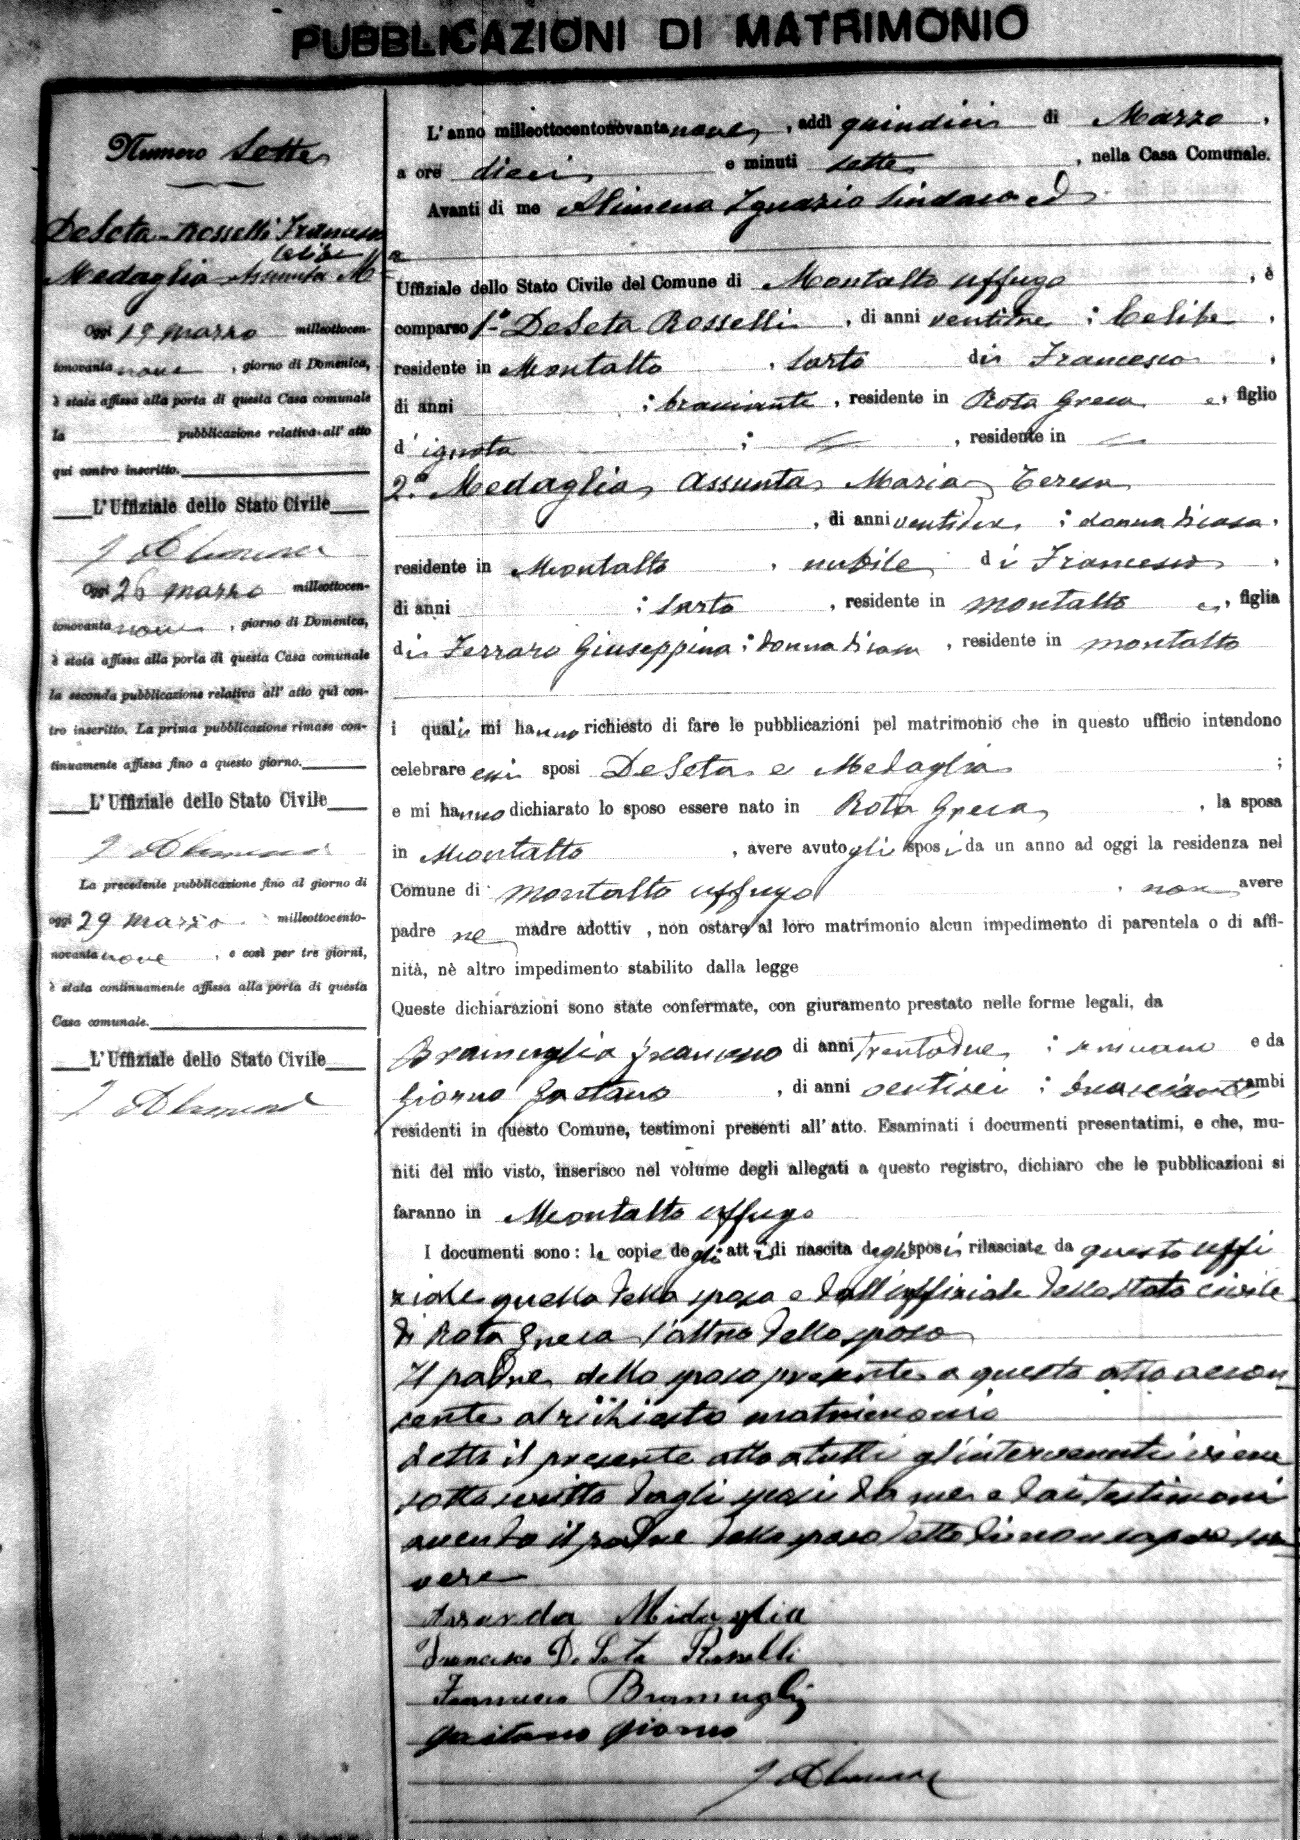 PUBBLICAZIONI DI MATRIMONIO
Numero Sette
DeSeta-Rosselli Francesco
Celibe e
Medaglia Assunta M
Oggi 19 marzo millottocen-
tonovanta nove, giorno di Domenica,
è stata affissa alla porta di questa Casa comunale
la pubblicazione relativa all' atto
qui contro inscritto.
L'Uffiziale dello Stato Civile
I Alimena
Oggi 26 marzo milleottocen-
tonovanta nove, giorno di Domenica,
è stata affissa alla porta di questa Casa comunale
la seconda pubblicazione relativa all' atto qui con-
tro inscritto. La prima pubblicazione rimase con-
tinuamente affissa fino a questo giorno.
L'Uffiziale dello Stato Civile
I Alimena
La precedente pubblicazione fino al giorno di
oggi 29 marzo milleottocento-
novanta nove, e così per tre giorni,
è stata continuamente affissa alla porta di questa
Casa comunale.
L'Uffiziale dello Stato Civile
I Alimena
L'anno milleottocentonovanta nove, addì quindici di Marzo,
a ore dieci e minuti sette, nella Casa Comunale.
Avanti di me Alimena Ignazio Sindaco ed
Uffiziale dello Stato Civile del Comune di Montalto Uffugo, è
comparso 1º DeSeta Rosselli, di anni ventitre; Celibe,
residente in Montalto, sarto di Francesco,
di anni ; bracciante, residente in Rota Greca e, figlio
d' ignota ; , residente in
2º Medaglia Assunta Maria Teresa
, di anni ventidue; donna di casa,
residente in Montalto, nubile di Francesco,
di anni ; sarto, residente in Montalto e, figlia
di Ferraro Giuseppina; donna di casa, residente in Montalto
i quali mi hanno richiesto di fare le pubblicazioni pel matrimonio che in questo ufficio intendono
celebrare essi sposi DeSeta e Medaglia ;
e mi hanno dichiarato lo sposo essere nato in Rota Greca, la sposa
in Montalto, avere avuto gli sposi da un anno ad oggi la residenza nel
Comune di Montalto Uffugo, non avere
padre ne madre adottiv , non ostare al loro matrimonio alcun impedimento di parentela o di affi-
nità, nè altro impedimento stabilito dalla legge
Queste dichiarazioni sono state confermate, con giuramento prestato nelle forme legali, da
Bramuglia Francesco di anni trentadue; scrivano e da
Giorno Gaetano, di anni ventisei; bracciante ambi
residenti in questo Comune, testimoni presenti all'atto. Esaminati i documenti presentatimi, e che, mu-
niti del mio visto, inserisco nel volume degli allegati a questo registro, dichiaro che le pubblicazioni si
faranno in Montalto Uffugo
I documenti sono: le copie degli atti di nascita degli sposi rilasciate da questo uffi
ziale quella della sposa e dall'uffiziale dello stato civile
di Rota Greca l'altra dello sposo
Il padre della sposa presente a questo atto accon
sente al richiesto matrimonio
Letto il presente atto a tutti gl'intervenuti viene
sottoscritto dagli sposi da me e dai testimoni
avendo il padre della sposa detto di non sapere scri
vere
Assunda Midaglia
Francesco De Seta Rosselli
Francesco Bramuglia
Gaitano Giorno
I Alimena